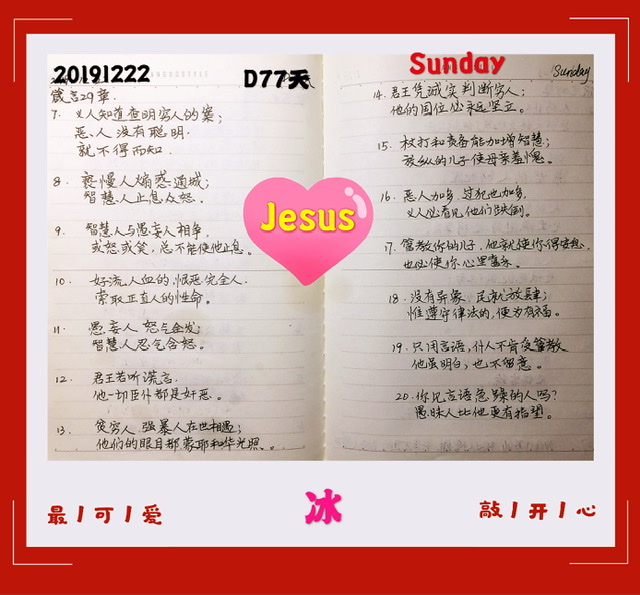 20191222
D77天
箴言29章.
7. 义人知道查明穷人的案；
恶人没有聪明.
就不得而知.
8. 亵慢人煽惑通城；
智慧人止息众怒.
9. 智慧人与愚妄人相争,
或怒或笑,总不能使他止息。
10. 好流人血的,恨恶完全人.
索取正直人的性命。
11. 愚妄人怒气全发；
智慧人忍气含怒。
12. 君王若听谎言.
他一切臣仆都是奸恶。
13. 贫穷人.强暴人在世相遇；
他们的眼目都蒙耶和华光照.
Jesus
Sunday
Sunday
14. 君王凭诚实判断穷人；
他的国位必永远坚立。
15. 杖打和责备能加增智慧；
放纵的儿子使母亲羞愧。
16. 恶人加多,过犯也加多,
义人必看见他们跌倒。
17. 管教你的儿子,他就使你得安息,
也必使你心里喜乐。
18. 没有异象,民就放肆；
惟遵守律法的,便为有福。
19. 只用言语,仆人不肯受管教
他虽明白,也不留意。
20. 你见言语急躁的人吗?
愚昧人比他更有指望。
最丨可丨爱
冰
敲丨开丨心